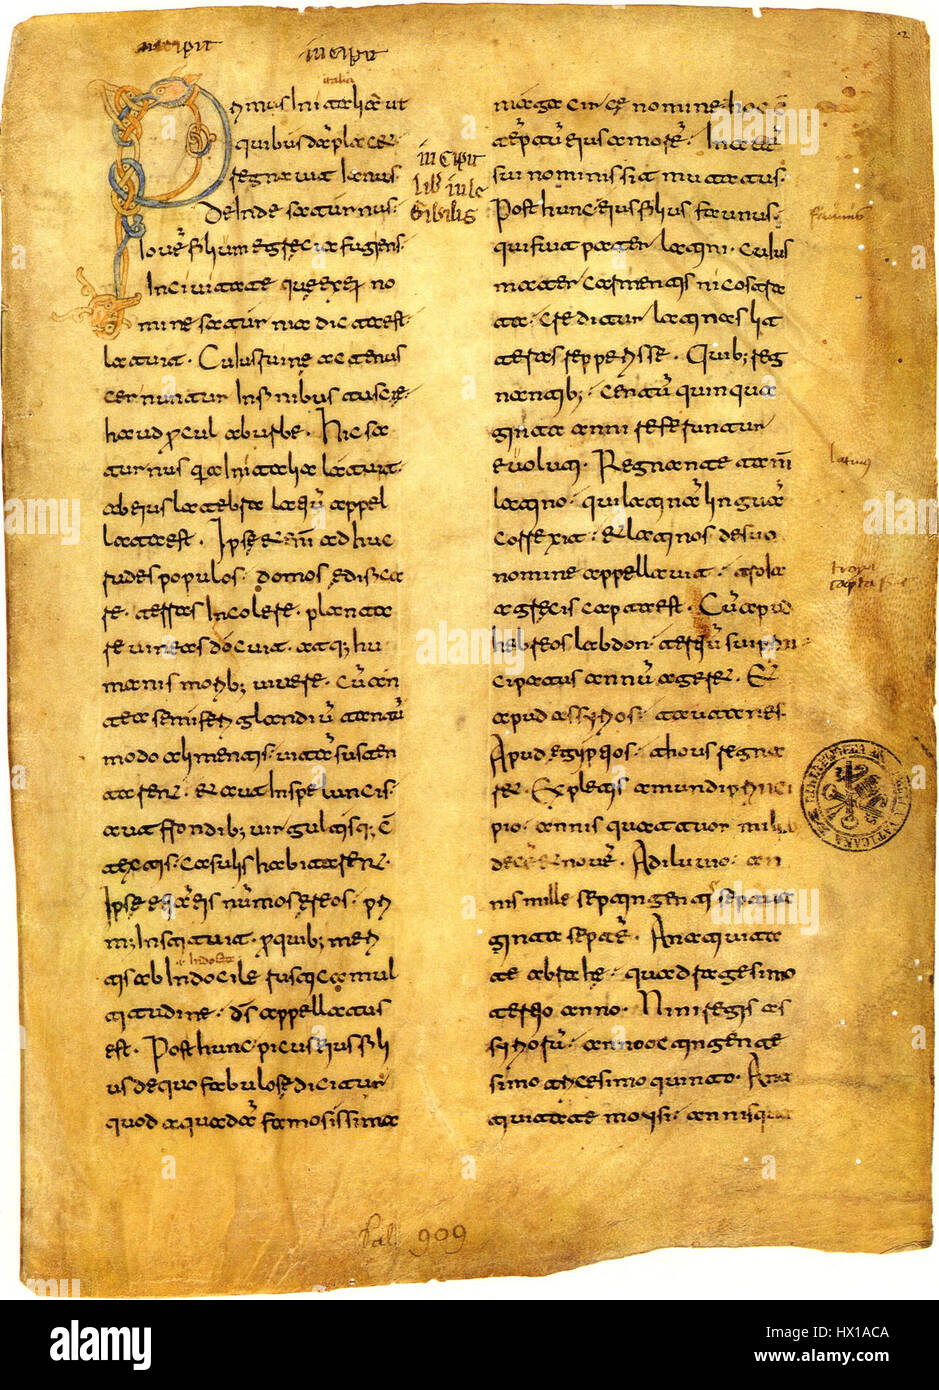 incipit
incipit
italia
Primus In italia ut
quibusdā placet
regnavit Ianus.
Deinde saturnus.
Iovē filium e grecia fugiens.
In civitate que ex ei no
mine saturnia dicta est.
latuit. Cuius ruine actenus
cernuntur In finibus tuscie.
haud pcul ab urbe. Hic sa
turnus qa In italia latuit.
ab eius latebra latiū appel
lata est. Ipse etem adhuc
rudes populos. domos edifica
re. terras Incolere. planta
re vineas docuit. atq; hu
manis morib; vivere. Cū an
tea semiferi glandiū tantū
modo alimentis. vitā susten
tarent. et aut In speluncis.
aut frondib; virgultisq; cō
textis. casulis habitarent.
Ipse etiā eis nūmos ereos. pri
m; Instituit. p quib; meri
tis ab Indocile rusticamul
titudine. ds appellatus
est. Post hunc picus eius fili
us de quo fabulose dicitur
quod a quadā famosissima
incipit
lib iule
maga circe nomine. hoc ē
eius amore. In avē
sui nominis sit mutatus.
Post hunc eius filius faunus.
qui fuit pater latini. Cuius
mater carmentis nicostra
ta. creditur latinas lit
teras repperisse. Quib; reg
nantib; centū quinqua
ginta anni referuntur
evoluti. Regnante tam
latino. qui latinā linguā
correxit. et latinos de suo
nomine appellavit. troia
a grecis capta est. Cū apud
hebreos labdon. tertiū sui prin
cipatus annū ageret. Et
apud assirios. tautanes.
Apud egiptios. thous regna
ret. Expletis a mundi princi
pio. annis quattuor milia
decē et novē. A diluvio. an
nis mille septingentis septua
ginta septē. A nativita
te abrahe. quadragesimo
tertio anno. Nini regis as
siriorū. anno octingente
simo tricesimo quinto. A na
tivitate moysi. annis qua
faunus
latinus
troia
capta
Pal. 909
alamy
HX1ACA
www.alamy.com